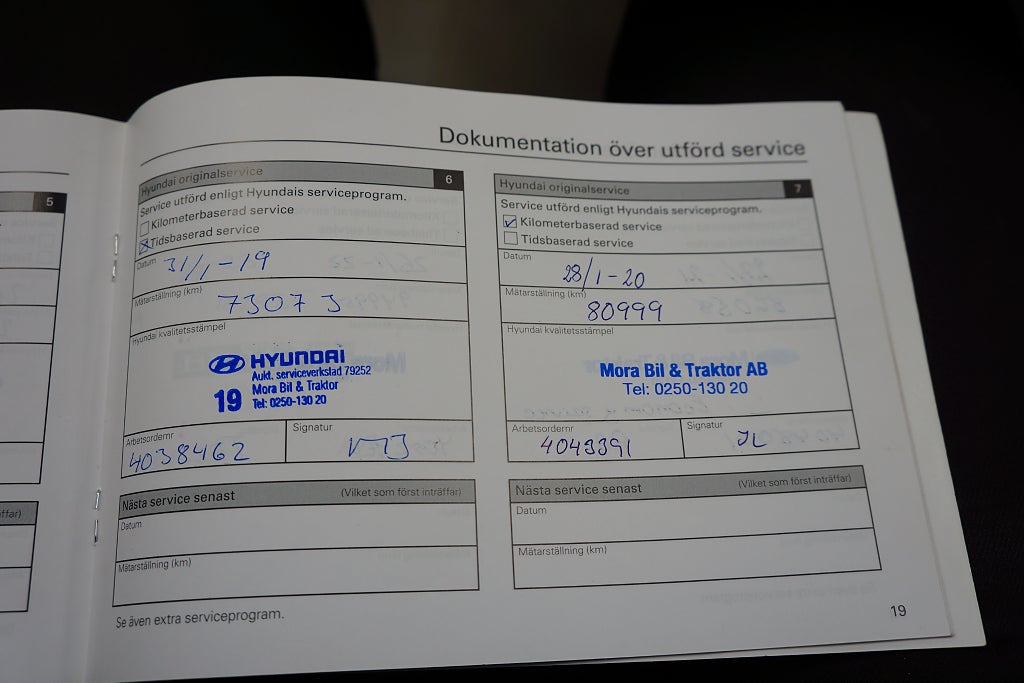 Dokumentation över utförd service
5
ffar)
Hyundai originalservice 6
Service utförd enligt Hyundais serviceprogram.
Kilometerbaserad service
Tidsbaserad service
Datum 31/1-19
Mätarställning (km) 73073
Hyundai kvalitetsstämpel
HYUNDAI
Aukt. serviceverkstad 79252
Mora Bil & Traktor
19 Tel: 0250-130 20
Arbetsordernr Signatur
4038462 MJ
Nästa service senast (Vilket som först inträffar)
Datum
Mätarställning (km)
Se även extra serviceprogram.
Hyundai originalservice 7
Service utförd enligt Hyundais serviceprogram.
Kilometerbaserad service
Tidsbaserad service
Datum
28/1-20
Mätarställning (km)
80999
Hyundai kvalitetsstämpel
Mora Bil & Traktor AB
Tel: 0250-130 20
Arbetsordernr Signatur
4043391 JL
Nästa service senast (Vilket som först inträffar)
Datum
Mätarställning (km)
19